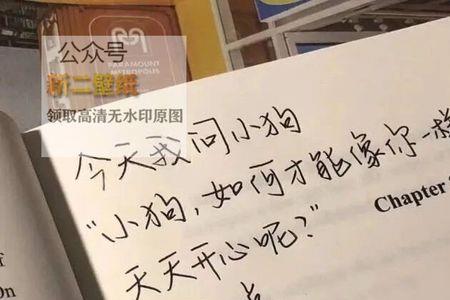 公众号
新二壁纸
领取高清无水印原图
PARAMOUNT
METROPOLIS
今天我问小狗
“小狗,如何才能像你一样
Chapter
天天开心呢?”